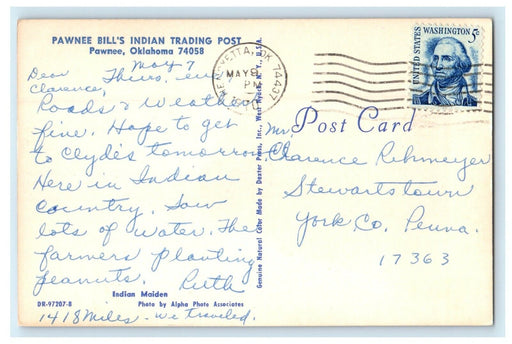 PAWNEE BILL'S INDIAN TRADING POST
Pawnee, Oklahoma 74058
May 7
Dear Thurs. eve
Clarence,
Roads & weather
fine. Hope to get
to Clyde's tomorrow.
Here in Indian
Country. Saw
lots of water. The
farmers planting
peanuts. Ruth
Indian Maiden
DR-97207-B Photo by Alpha Photo Associates
1418 Miles - we traveled.
Genuine Natural Color Made by Dexter Press, Inc., West Nyack, N.Y., U.S.A.
HENRYETTA, OK 74437
MAY 8
PM
UNITED STATES WASHINGTON 5c
Post Card
Mr.
Clarence Rehmeyer
Stewartstown
York Co. Penna.
17363